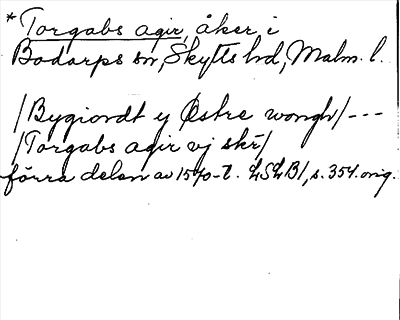 *Torgabs agir, åker i
Bodarps sn, Skytts hd, Malm. l.
/Bygiordt y Østre wongh/ ---
/Torgabs agir vj skr/
förra delen av 1570-t. LSLB1, s. 354. orig.